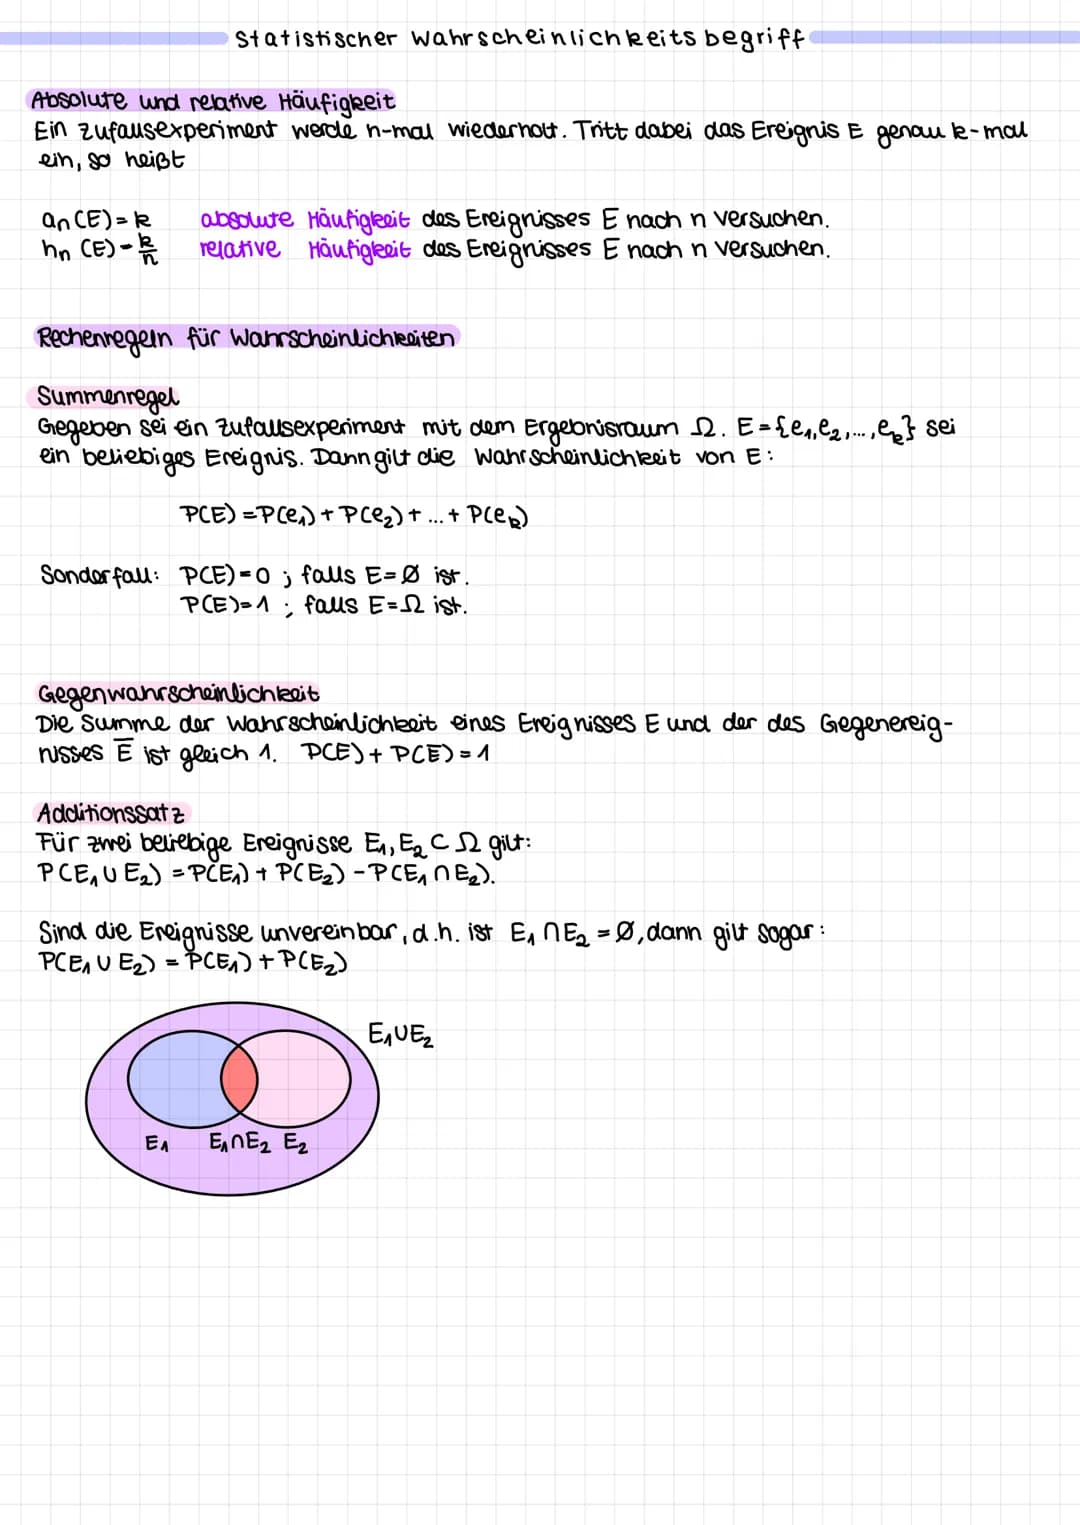 Statistischer Wahrscheinlichkeitsbegriff
Absolute und relative Häufigkeit
Ein Zufallsexperiment werde n-mal wiederholt. Tritt dabei das Ereignis E genau k-mal
ein, so heißt
aₙ(E) = k absolute Häufigkeit des Ereignisses E nach n Versuchen.
hₙ(E) = k/n relative Häufigkeit des Ereignisses E nach n Versuchen.
Rechenregeln für Wahrscheinlichkeiten
Summenregel
Gegeben sei ein Zufallsexperiment mit dem Ergebnisraum Ω. E = {e₁,e₂,...,eₖ} sei
ein beliebiges Ereignis. Dann gilt die Wahrscheinlichkeit von E:
P(E) = P(e₁) + P(e₂) + ... + P(eₖ)
Sonderfall: P(E) = 0 ; falls E = Ø ist.
P(E) = 1 ; falls E = Ω ist.
Gegenwahrscheinlichkeit
Die Summe der Wahrscheinlichkeit eines Ereignisses E und der des Gegenereig-
nisses E̅ ist gleich 1. P(E) + P(E) = 1
Additionssatz
Für zwei beliebige Ereignisse E₁, E₂ ⊂ Ω gilt:
P(E₁ ∪ E₂) = P(E₁) + P(E₂) - P(E₁ ∩ E₂).
Sind die Ereignisse unvereinbar, d.h. ist E₁ ∩ E₂ = Ø, dann gilt sogar:
P(E₁ ∪ E₂) = P(E₁) + P(E₂)
E₁∪E₂
E₁ E₁∩E₂ E₂